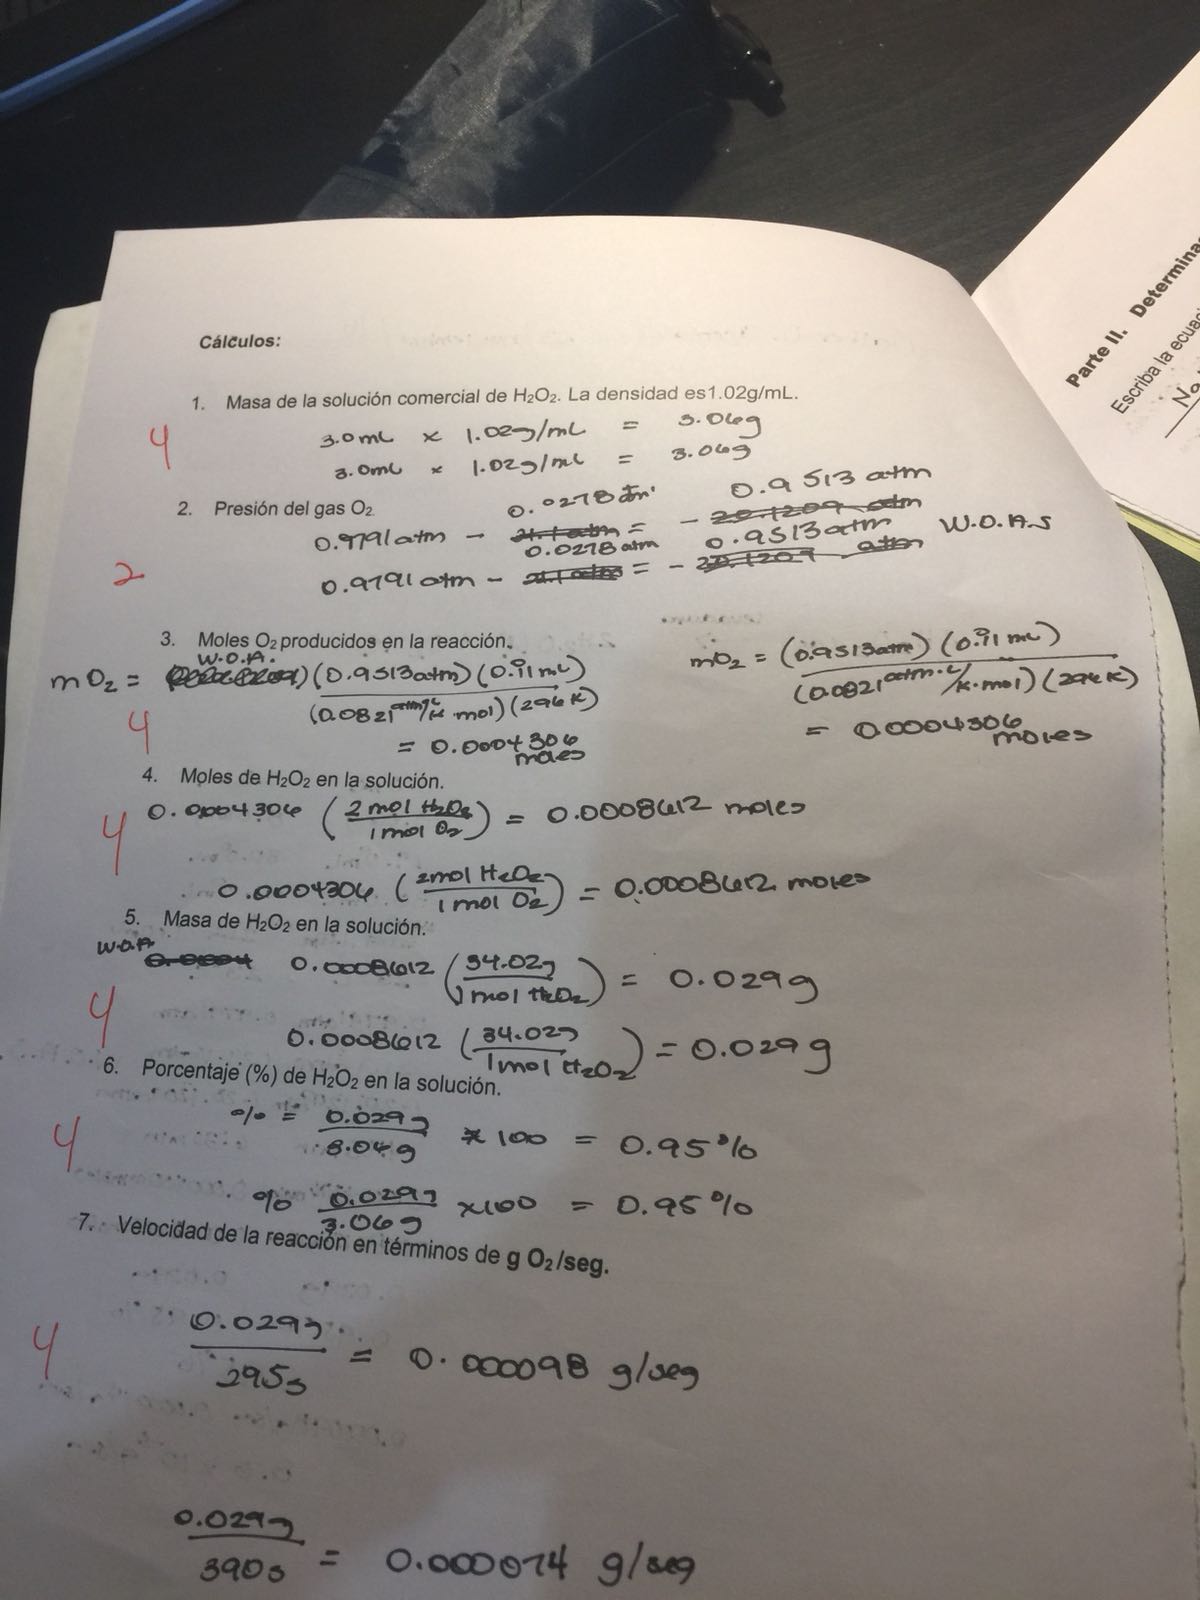 Cálculos:
1. Masa de la solución comercial de H₂O₂. La densidad es1.02g/mL.
4
3.0mL x 1.02g/mL = 3.06g
3.0mL x 1.02g/mL = 3.06g
2. Presión del gas O₂
0.0278 atm 0.9513 atm
0.9791atm - 21.1 atm = - 20.1209 atm
0.0278 atm 0.9513atm W.O.A.S
2
0.9791 atm - 21.1 atm = - 20.1209 atm
3. Moles O₂ producidos en la reacción.
W.O.A.
mO₂ = (0.9513atm) (0.011 mL)
(0.0821 atm·L/K·mol) (296K)
4
= 0.0004306
moles
mO₂ = (0.9513atm) (0.011 mL)
(0.0821 atm·L/K·mol) (296K)
= 0.0004306
moles
4. Moles de H₂O₂ en la solución.
4
0.0004306 (2 mol H₂O₂ / 1 mol O₂) = 0.0008612 moles
0.0004306 (2mol H₂O₂ / 1 mol O₂) = 0.0008612 moles
5. Masa de H₂O₂ en la solución.
W.O.A
0.0004 0.0008612 (34.02g / 1 mol H₂O₂) = 0.029g
4
0.0008612 (34.02g / 1mol H₂O₂) = 0.029g
6. Porcentaje (%) de H₂O₂ en la solución.
4
% = 0.029g / 3.06g x 100 = 0.95%
% 0.029g / 3.06g x100 = 0.95%
7. Velocidad de la reacción en términos de g O₂/seg.
4
0.029g / 295s = 0.000098 g/seg
0.029g / 390s = 0.000074 g/seg
Parte II.
Escriba la